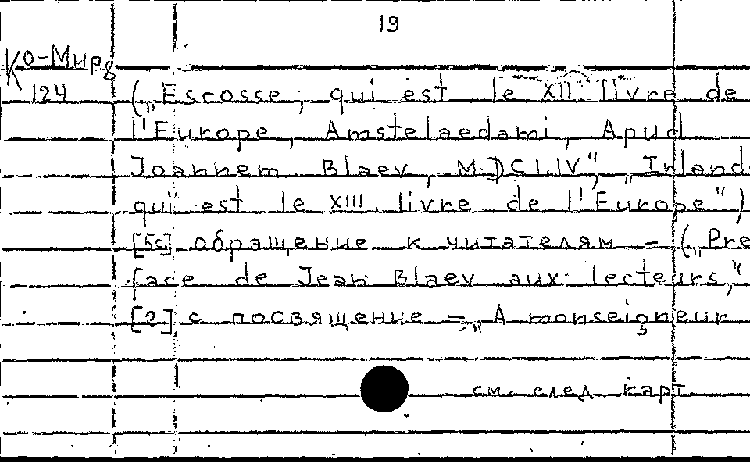 19
Ко-Мир8
124 („Escosse, qui est le XII livre de
l'Europe, Amstelaedami, Apud
Joannem Blaev, MDCLIV“, „Irland
qui est le XIII livre de l'Europe“)
[5c] обращение к читателям - („Pre
face de Jean Blaev aux lecteurs,“
[2] с посвящение - „A monseigneur
см. след. карт.